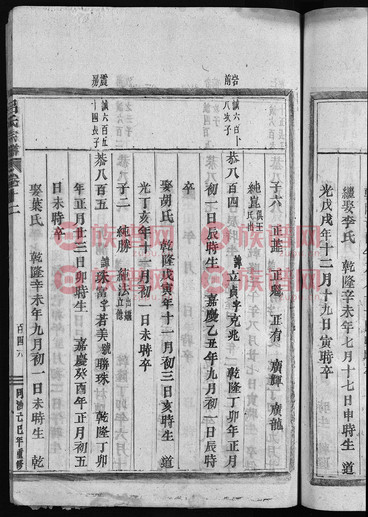 繼娶李氏　乾隆辛未年七月十七日申時生　道
光戊戌年十二月十九日寅時卒
子六　正謚　正魁　正有　廣輝　廣龍
純崑
誠六百十
八次子
恭八百四　諱立貞字克兆　乾隆丁卯年正月
初一日辰時生　嘉慶乙丑年九月初一日辰時
卒
娶胡氏　乾隆戊寅年十一月初三日亥時生　道
光丁亥年十一月初一日未時卒
子二　純勝　純法出繼立德
震房
誠六百二
十四長子
恭八百五　諱珠富字若美號聯珠　乾隆丁卯
年正月廿三日卯時生　嘉慶癸酉年正月初五
日未時卒
娶葉氏　乾隆辛未年九月初一日未時生　乾
呂氏宗譜
百四六
同治己巳年重修
族谱网